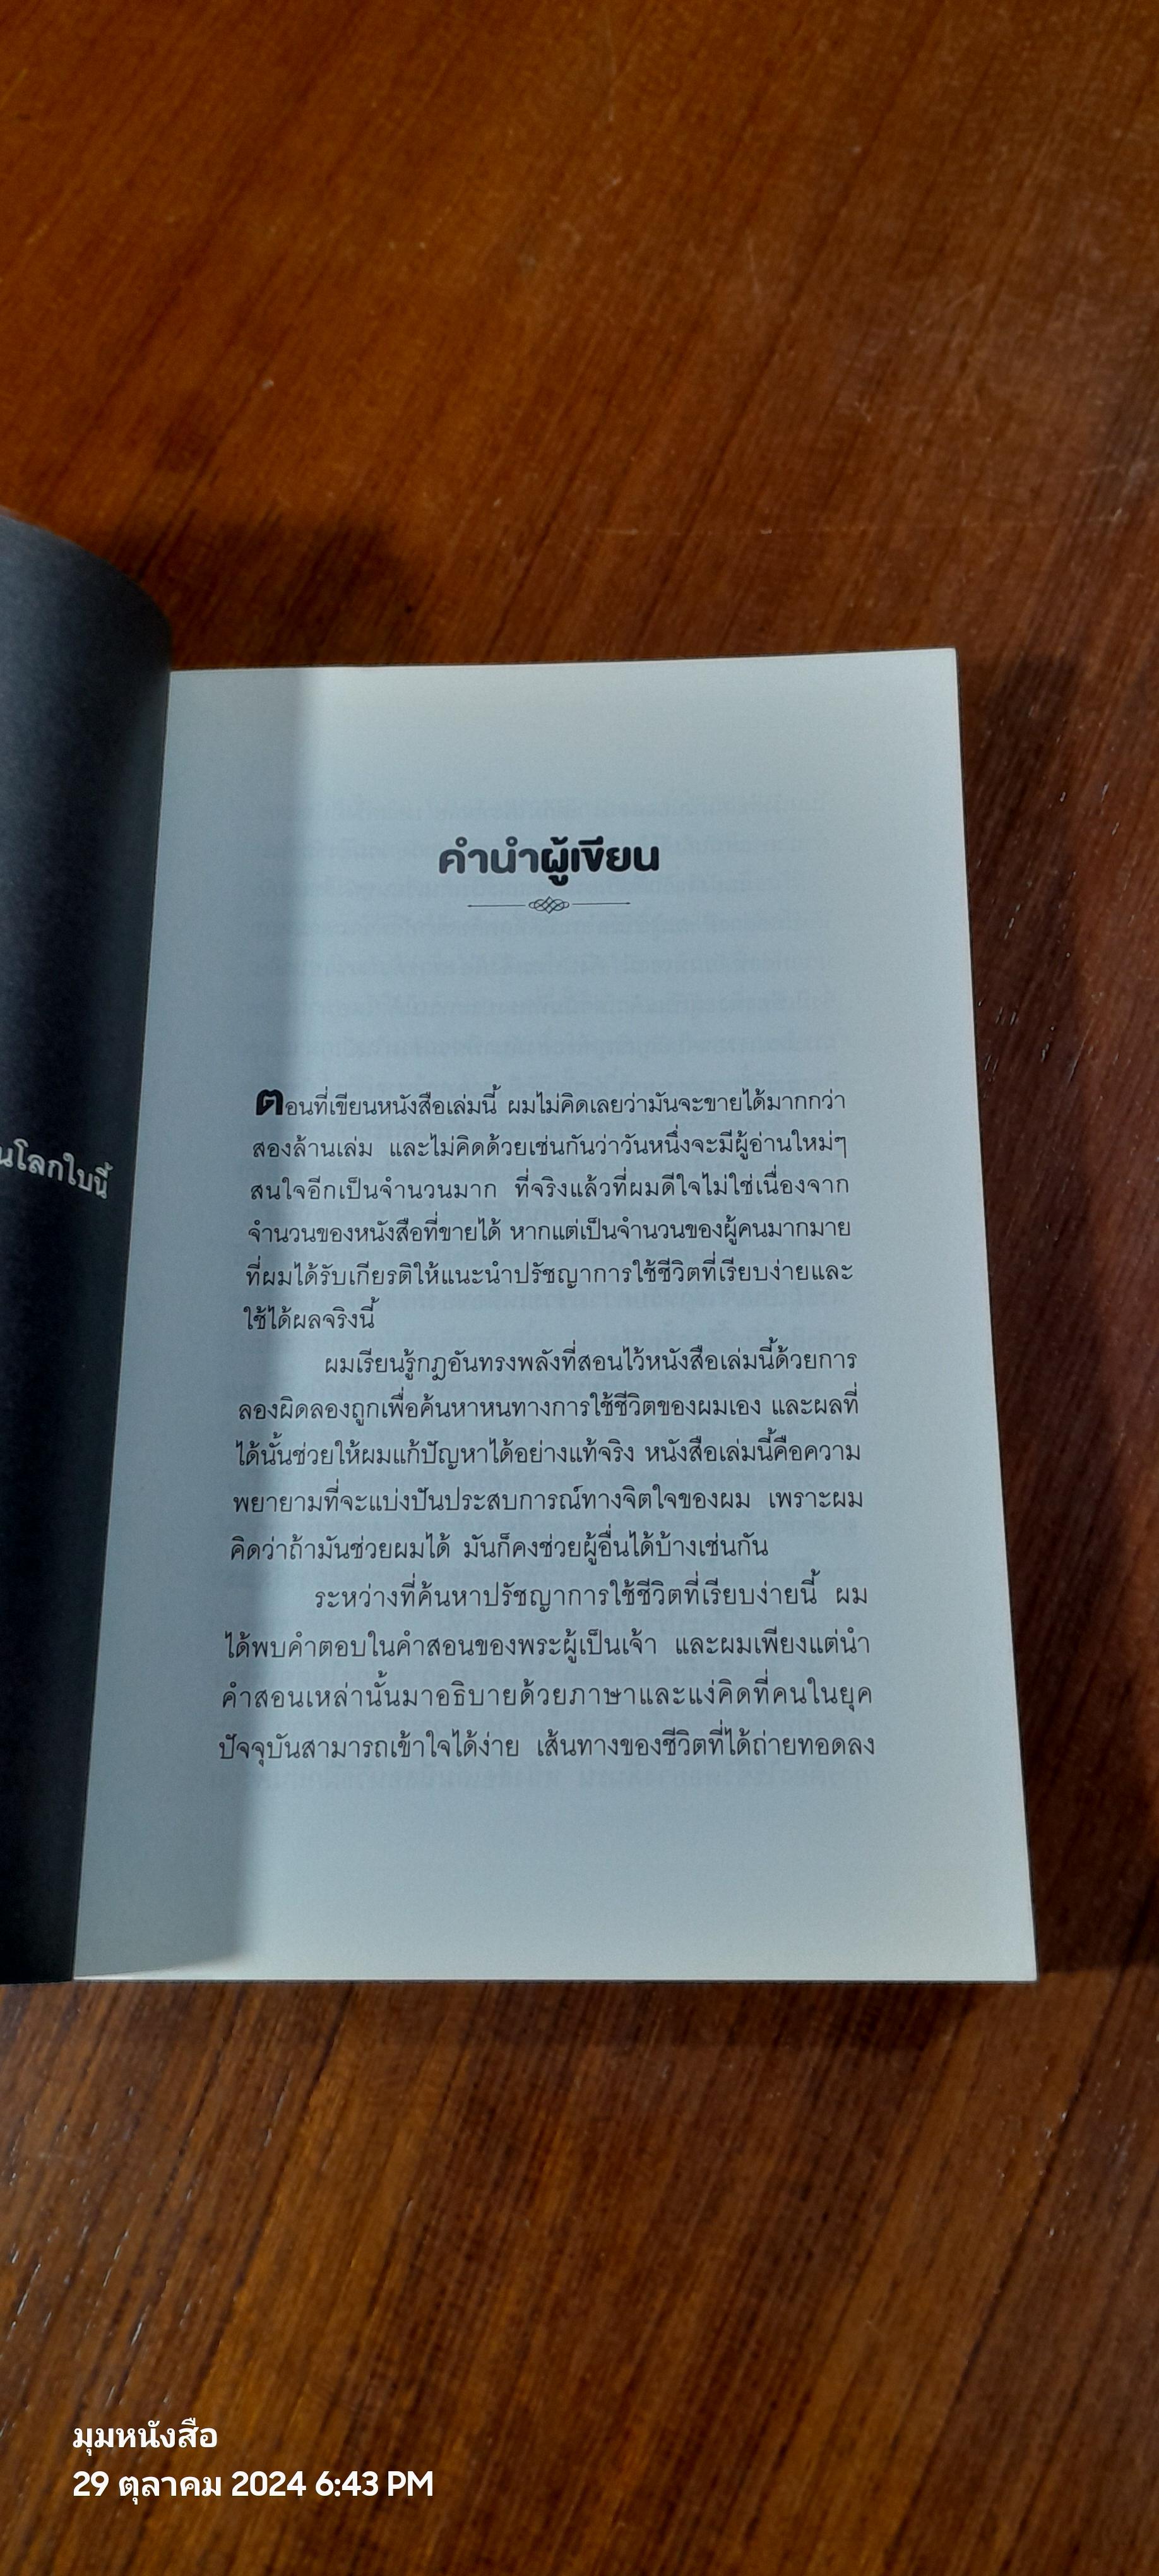 นโลกใบนี้
คำนำผู้เขียน
ตอนที่เขียนหนังสือเล่มนี้ ผมไม่คิดเลยว่ามันจะขายได้มากกว่า
สองล้านเล่ม และไม่คิดด้วยเช่นกันว่าวันหนึ่งจะมีผู้อ่านใหม่ๆ
สนใจอีกเป็นจำนวนมาก ที่จริงแล้วที่ผมดีใจไม่ใช่เนื่องจาก
จำนวนของหนังสือที่ขายได้ หากแต่เป็นจำนวนของผู้คนมากมาย
ที่ผมได้รับเกียรติให้แนะนำปรัชญาการใช้ชีวิตที่เรียบง่ายและ
ใช้ได้ผลจริงนี้
ผมเรียนรู้กฎอันทรงพลังที่สอนไว้หนังสือเล่มนี้ด้วยการ
ลองผิดลองถูกเพื่อค้นหาหนทางการใช้ชีวิตของผมเอง และผลที่
ได้นั้นช่วยให้ผมแก้ปัญหาได้อย่างแท้จริง หนังสือเล่มนี้คือความ
พยายามที่จะแบ่งปันประสบการณ์ทางจิตใจของผม เพราะผม
คิดว่าถ้ามันช่วยผมได้ มันก็คงช่วยผู้อื่นได้บ้างเช่นกัน
ระหว่างที่ค้นหาปรัชญาการใช้ชีวิตที่เรียบง่ายนี้ ผม
ได้พบคำตอบในคำสอนของพระผู้เป็นเจ้า และผมเพียงแต่นำ
คำสอนเหล่านั้นมาอธิบายด้วยภาษาและแง่คิดที่คนในยุค
ปัจจุบันสามารถเข้าใจได้ง่าย เส้นทางของชีวิตที่ได้ถ่ายทอดลง
มุมหนังสือ
29 ตุลาคม 2024 6:43 PM